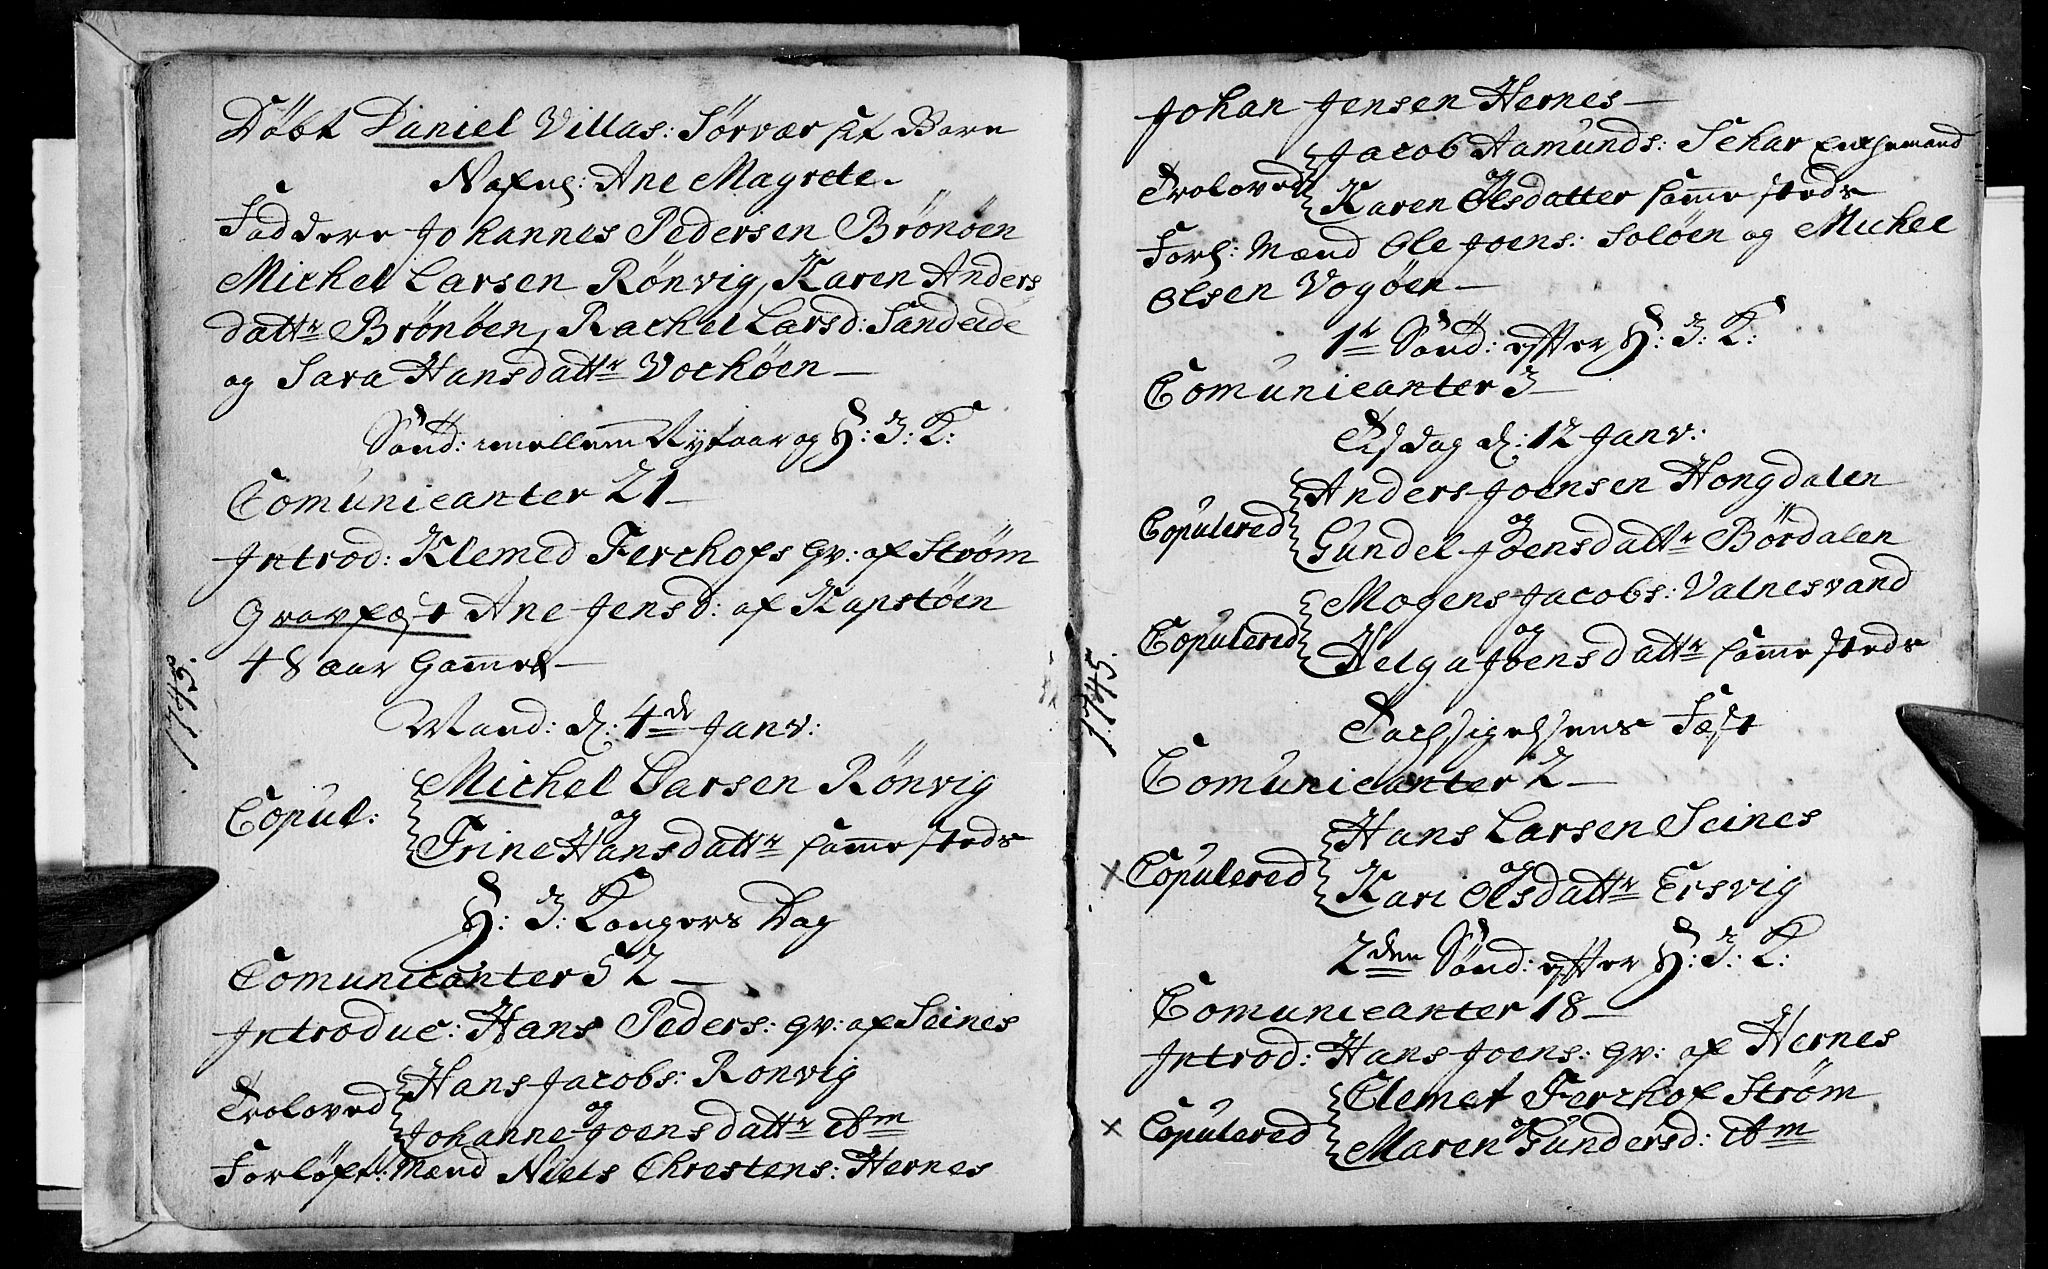 Döbt Daniel Villas: Sørvær sit Barn
Nafnl: Ane Magrete.
Faddere Johannes Pedersen Brönöen
Michel Larsen Rönvig, Karen Anders
dattr Brönöen, Rachel Larsd: Sandeide
og Sara Hansdattr Vochöen —
Sönd: imellem Nytaar og H: 3: K:
Comunicanter 21 —
Introd: Klemed Ferchofs qv: af Ström
Gravfæst Ane Jensd: af Kapstöen
48 aar Gammel —
1745.
Mand: d: 4de Janv:
Copul: Michel Larsen Rönvig
og
Trine Hansdattr samme steds
H: 3: Kongers Dag
Comunicanter 52 —
Introduc: Hans Peders: qv: af Seines
Troloved Hans Jacobs: Ronvig
og
Johanne Joensdattr ibm
Forlöft: Mænd Niels Chrestens: Hernes
Johan Jensen Hernes —
Jacob Aamunds: Schar Enchemand
Troloved og
Karen Olsdatter samme steds
Forl: Mænd Ole Joens: Solöen og Michel
Olsen Vogöen —
1te Sönd: effter H: 3: K:
Comunicanter 3 —
Tisdag d: 12 Janv:
Anders Joensen Hongdalen
Copulered og
Gundel Joensdattr Bördalen
Mogens Jacobs: Valnesvand
Copulered og
Helga Joensdattr samme steds
1745.
Tachsigelsens Fæst
Comunicanter 2 —
Hans Larsen Seines
x Copulered og
Kari Olsdattr Ersvig
2den Sönd: effter H: 3: K:
Comunicanter 18 —
Introd: Hans Joens: qv: af Hernes
Clemet Ferchof Ström
x Copulered og
Maren Gundersd: ibm